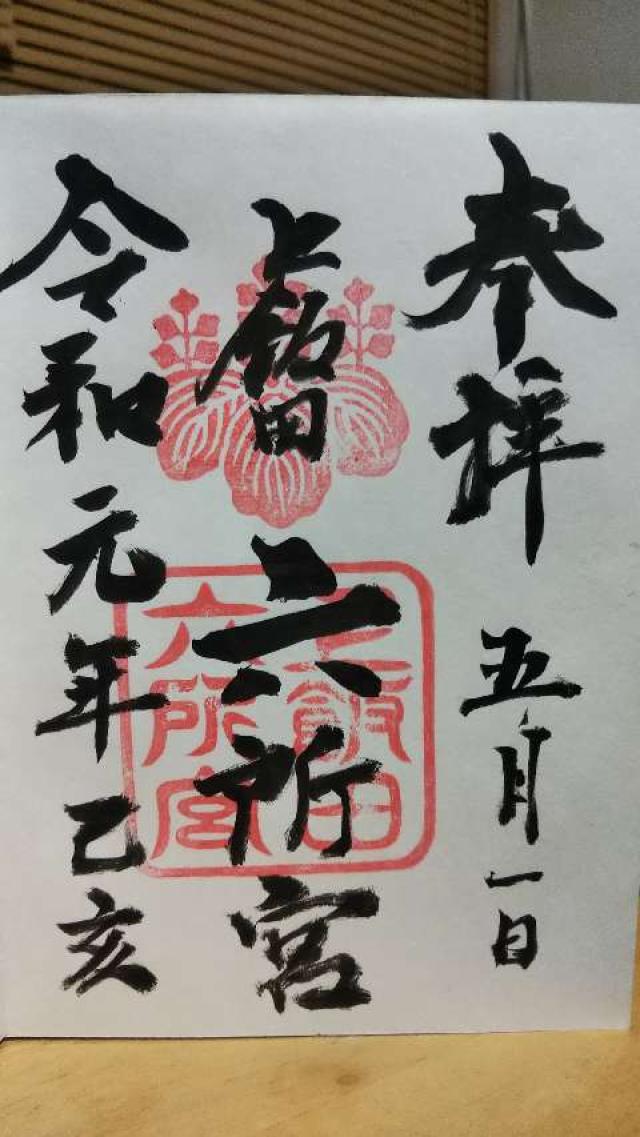 奉拝 五月一日
上飯田 六所宮
令和元年己亥
上飯田
六所宮